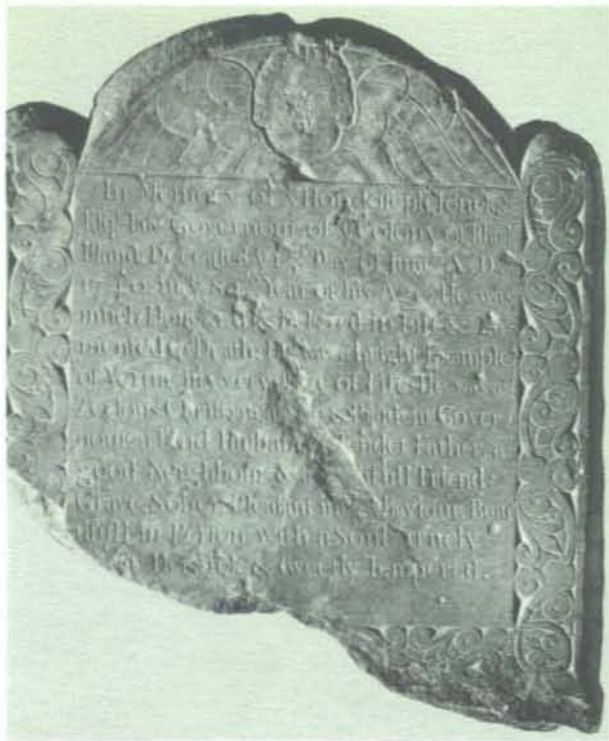 In Memory of y Hon Joseph Jencks
Esq late Governour of y Colony of Rhod
Island Deceased y 15th Day of June A D
1740 in y 84 Year of his Age He was
much Honoured & beloved in Life &
mented in Death He was a bright Example
of Vertue in every Stage of Life He was a
Zealous Christian a Wise & Prudent Gover
nour a kind Husband a tender Father a
good Neighbour & a faithfull Friend
Grave Sober Pleasant in Behaviour Beau
tifull in Person with a Soul truely
Heroick & sweetly Tempered